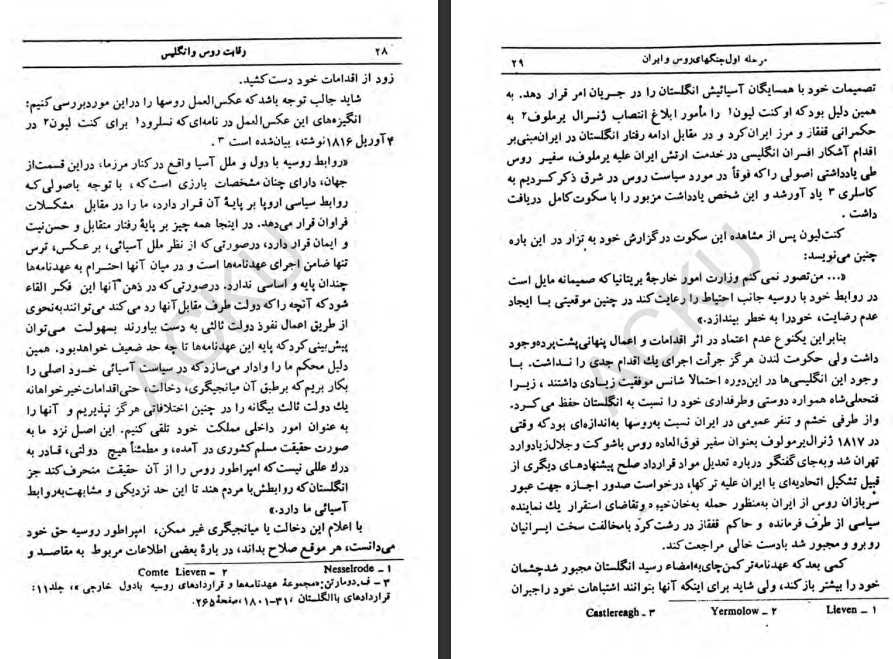 ۲۸ رقابت روس و انگلیس
زود از اقدامات خود دست کشید.
شاید جالب توجه باشد که عکس‌العمل روسها را در این مورد بررسی کنیم:
انگیزه‌های این عکس‌العمل در نامه‌ای که نسلرود۱ برای کنت لیون۲ در
۴ آوریل ۱۸۱۶ نوشته، بیان‌شده است ۳ .
«روابط روسیه با دول و ملل آسیا واقع در کنار مرزما، در این قسمت از
جهان، دارای چنان مشخصات بارزی است‌که، با توجه باصولی‌که
روابط سیاسی اروپا بر پایهٔ آن قرار دارد، ما را در مقابل مشکلات
فراوان قرار می‌دهد. در اینجا همه چیز بر پایهٔ رفتار متقابل و حسن‌نیت
و ایمان قرار دارد، درصورتی‌که از نظر ملل آسیائی، بر عکس، ترس
تنها ضامن اجرای عهدنامه‌ها است و در میان آنها احترام به عهدنامه‌ها
چندان پایه و اساسی ندارد. درصورتی‌که در ذهن آنها این فکر القاء
شود که آنچه را که دولت طرف مقابل آنها رد می‌کند می‌توانند به‌نحوی
از طریق اعمال نفوذ دولت ثالثی به دست بیاورند بسهولت می‌توان
پیش‌بینی کرد که پایه این عهدنامه‌ها تا چه حد ضعیف خواهد بود. همین
دلیل محکم ما را وادار می‌سازد که در سیاست آسیائی خود اصلی را
بکار بریم که برطبق آن میانجیگری، دخالت، حتی اقدامات خیرخواهانه
یك دولت ثالث بیگانه را در چنین اختلافاتی هرگز نپذیریم و آنها را
به عنوان امور داخلی مملکت خود تلقی کنیم. این اصل نزد ما به
صورت حقیقت مسلم کشوری در آمده، و مطمئناً هیچ دولتی، قادر به
درك عللی نیست که امپراطور روس را از آن حقیقت منحرف کند جز
انگلستان که روابطش با مردم هند تا این حد نزدیکی و مشابهت به‌روابط
آسیائی ما دارد.»
با اعلام این دخالت یا میانجیگری غیر ممکن، امپراطور روسیه حق خود
می‌دانست، هر موقع صلاح بداند، در بارهٔ بعضی اطلاعات مربوط به مقاصد و
۱ – Nesselrode ۲ – Comte Lieven
۳ – ف.دومارتن: «مجموعهٔ عهدنامه‌ها و قراردادهای روسیه بادول خارجی»، جلد۱۱:
قراردادهای باانگلستان ،۳۱–۱۸۰۱، صفحهٔ ۲۶۵.
مرحله اول جنگهای روس و ایران ۲۹
تصمیمات خود با همسایگان آسیائیش انگلستان را در جریان امر قرار دهد. به
همین دلیل بود که او کنت لیون۱ را مأمور ابلاغ انتصاب ژنرال یرملوف۲ به
حکمرانی قفقاز و مرز ایران کرد و در مقابل ادامه رفتار انگلستان در ایران مبنی‌بر
اقدام آشکار افسران انگلیسی در خدمت ارتش ایران علیه یرملوف، سفیر روس
طی یادداشتی اصولی را که فوقاً در مورد سیاست روس در شرق ذکر کردیم به
کاسلری ۳ یاد آورشد و این شخص یادداشت مزبور را با سکوت کامل دریافت
داشت .
کنت‌لیون پس از مشاهده این سکوت در گزارش خود به تزار در این باره
چنین می‌نویسد:
«... من تصور نمی‌کنم وزارت امور خارجهٔ بریتانیا که صمیمانه مایل است
در روابط خود با روسیه جانب احتیاط را رعایت کند در چنین موقعیتی بـا ایجاد
عدم رضایت، خودرا به خطر بیندازد.»
بنابراین یکنوع عدم اعتماد در اثر اقدامات و اعمال پنهانی پشت‌پرده وجود
داشت ولی حکومت لندن هرگز جرأت اجرای یك اقدام جدی را نـداشت. بـا
وجود این انگلیسی‌ها در این‌دوره احتمالا شانس موفقیت زیـادی داشتند ، زیـرا
فتحعلی‌شاه همواره دوستی وطرفداری خود را نسبت به انگلستان حفظ می‌کـرد.
واز طرفی خشم و تنفر عمومی در ایران نسبت به‌روسها به‌اندازه‌ای بود که وقتی
در ۱۸۱۷ ژنرال یرمولوف بعنوان سفیر فوق‌العاده روس باشوکت وجلال زیادوارد
تهران شد وبه‌جای گفتگو درباره تعدیل مواد قرارداد صلح پیشنهادهـای دیگری از
قبیل تشکیل اتحادیه‌ای با ایران علیه ترکها، درخواست صدور اجـازه جهت عبور
سربازان روس از ایران به‌منظور حمله به‌خان‌خیوه وتقاضای استقرار یك نماینده
سیاسی از طرف فرمانده و حاکم قفقاز در رشت کرد بامخالفت سخت ایرانیان
روبرو و مجبور شد بادست خالی مراجعت کند.
کمی بعد که عهدنامه ترکمن‌چای به‌امضاء رسید انگلستان مجبور شد چشمان
خود را بیشتر باز کند، ولی شاید برای اینکه آنها بتوانند اشتباهات خود را جبران
۱ – Lieven ۲ – Yermolow ۳ – Castlereagh
ACKU
ACKU